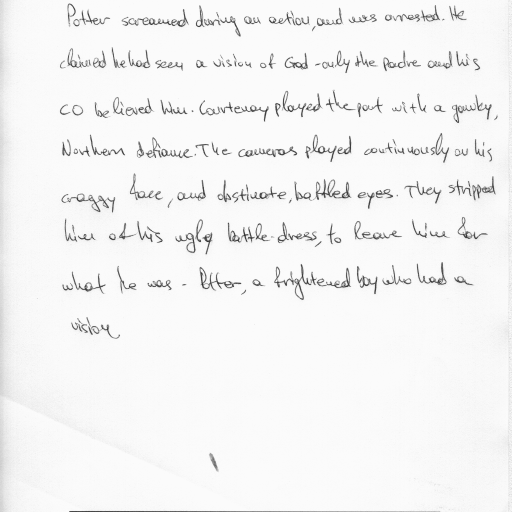 Potter screamed during an action, and was arrested. He
claimed he had seen a vision of God - only the padre and his
CO believed him. Courtenay played the part with a gawky,
Northern defiance. The cameras played continuously on his
craggy face, and obstinate, baffled eyes. They stripped
him of his ugly battle-dress, to leave him for
what he was - Potter, a frightened boy who had a
vision